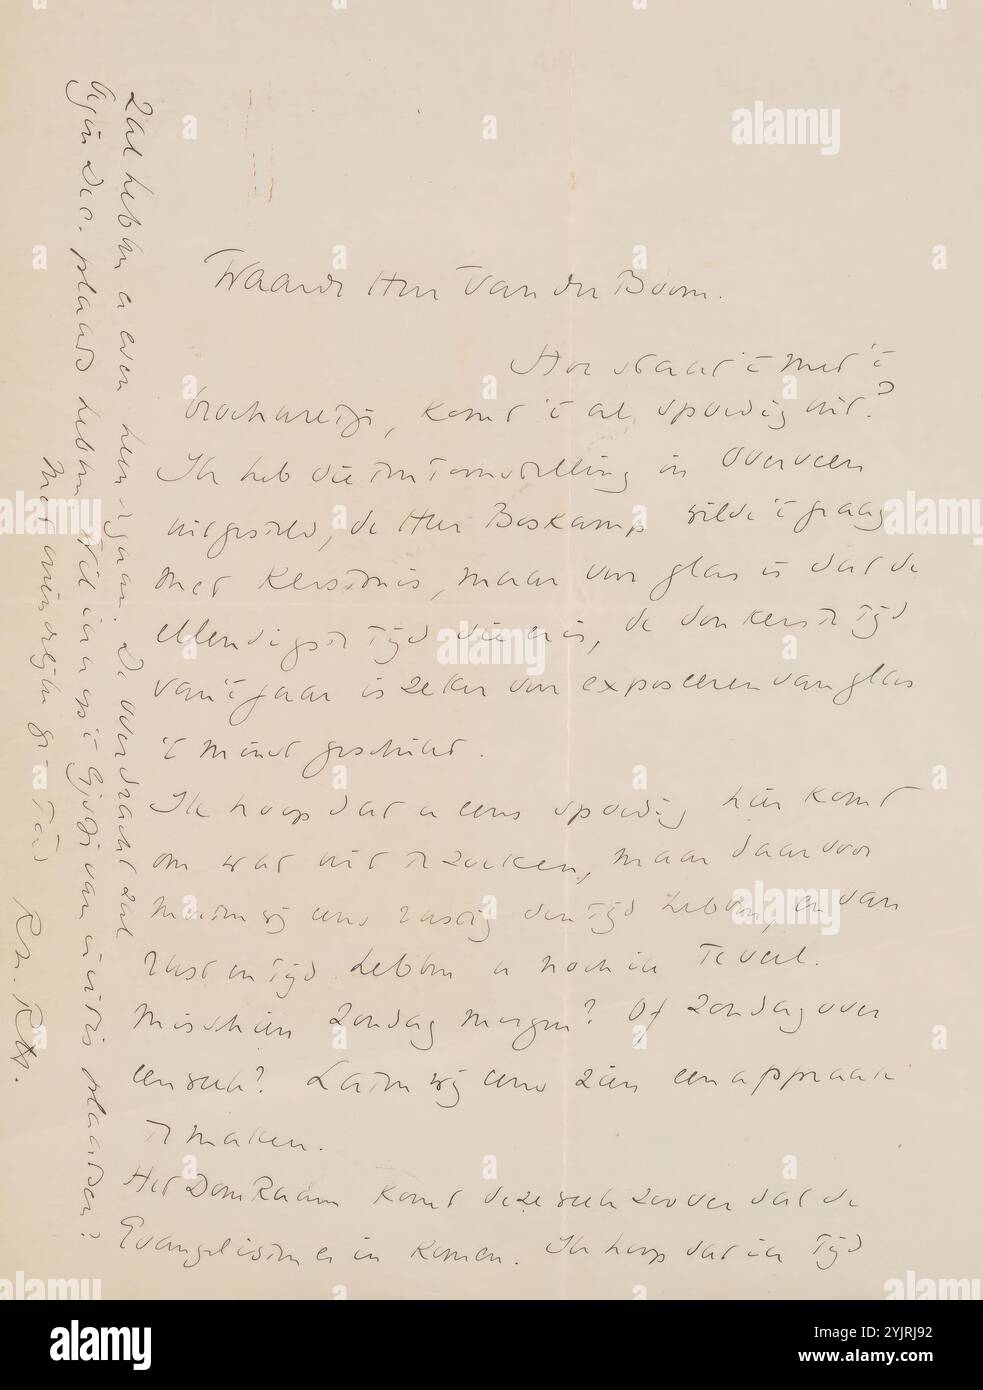 Waarde Heer Van der Boom.
Hoe staat 't met 't
brochuretje, komt 't al spoedig uit?
Ik heb die tentoonstelling in Overveen
uitgesteld, de Heer Boskamp wilde 't graag
met Kerstmis, maar voor glas is dat de
ellendigste tijd die er is, de donkerste tijd
van 't jaar is zeker voor exposeeren van glas
't minst geschikt.
Ik hoop dat u eens spoedig hier komt
om wat uit te zoeken, maar daarvoor
moeten wij eens rustig den tijd hebben, en van
rust en tijd hebben u noch ik te veel.
Misschien Zondag morgen? Of Zondag over
een week? Laten wij eens zien een appraak
te maken.
Het Dom Raam komt deze week zoover dat de
Evangelisten er in komen. Ik hoop dat ik tijd
zal hebben er even heen te gaan. De overdracht zal
begin Dec. plaats hebben. Wil u op 't lijstje van plaatsen?
Met vriendelijke gr. Tàv
R. N. Rol.
alamy
Image ID: 2YJRJ92
www.alamy.com